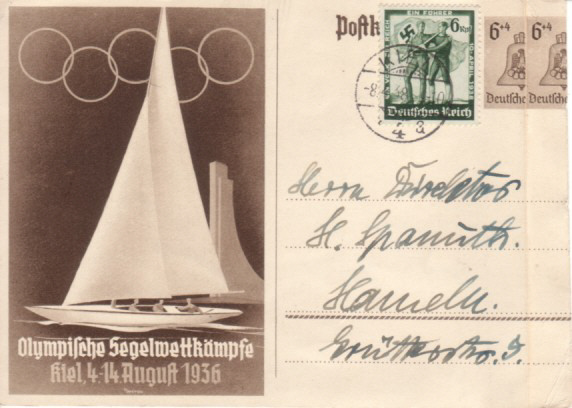 Postk
EIN FÜHRER
6
10. APRIL 1938
Deutsches Reich
6+4
6+4
Deutsche
Deutsche
Herrn Direktor
H. Spanuth.
Hameln.
Olympische Segelwettkämpfe
Kiel, 4.-14. August 1936